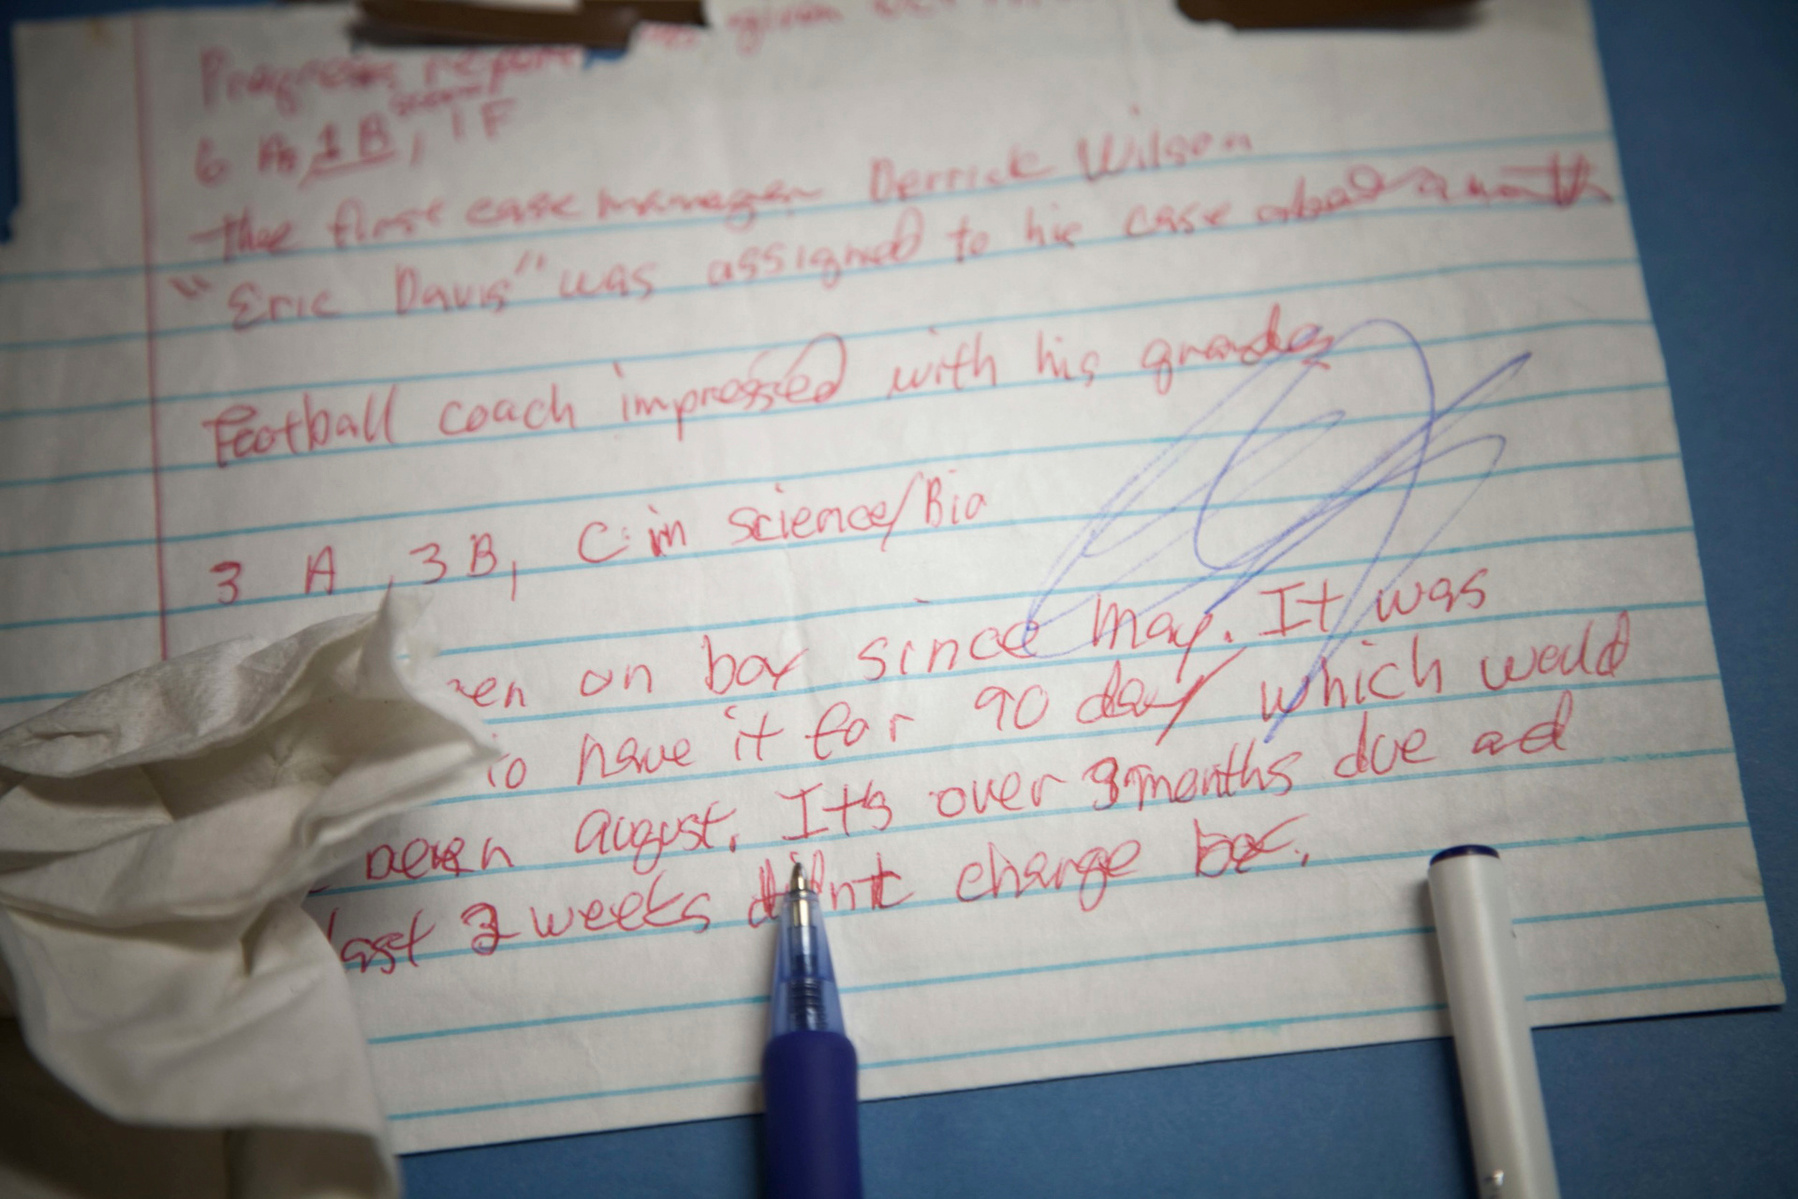 Progress report given
6 As 1 B, 1 F
The first case manager Derrick Wilson
"Eric Davis" was assigned to his case
Football coach impressed with his grades
3 A, 3 B, C in science/Bio
on box since may. It was
to have it for 90 day which would
been august. Its over 3 months due ad
last 3 weeks didnt change box.